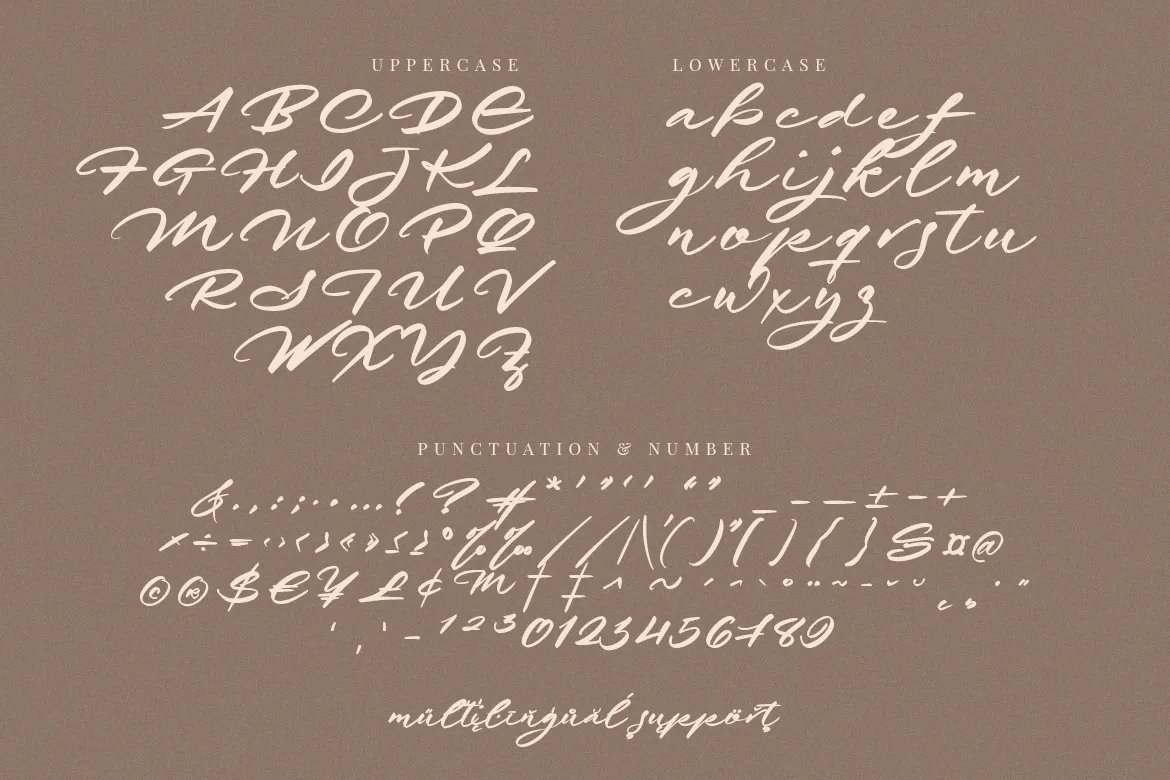 UPPERCASE
A B C D E
F G H I J K L
M N O P Q
R S T U V
W X Y Z
LOWERCASE
a b c d e f
g h i j k l m
n o p q r s t u
v w x y z
PUNCTUATION & NUMBER
& . , : ; … ! ? # * ' " ' ' “ ” _ – — ± − +
× ÷ = ‹ › < > « » ≤ ≥ ° % ‰ / / | \ ( ) [ ] { } § ¤ @
© ® $ € ¥ £ ¢ † ‡ ^ ~
1 2 3 0 1 2 3 4 5 6 7 8 9